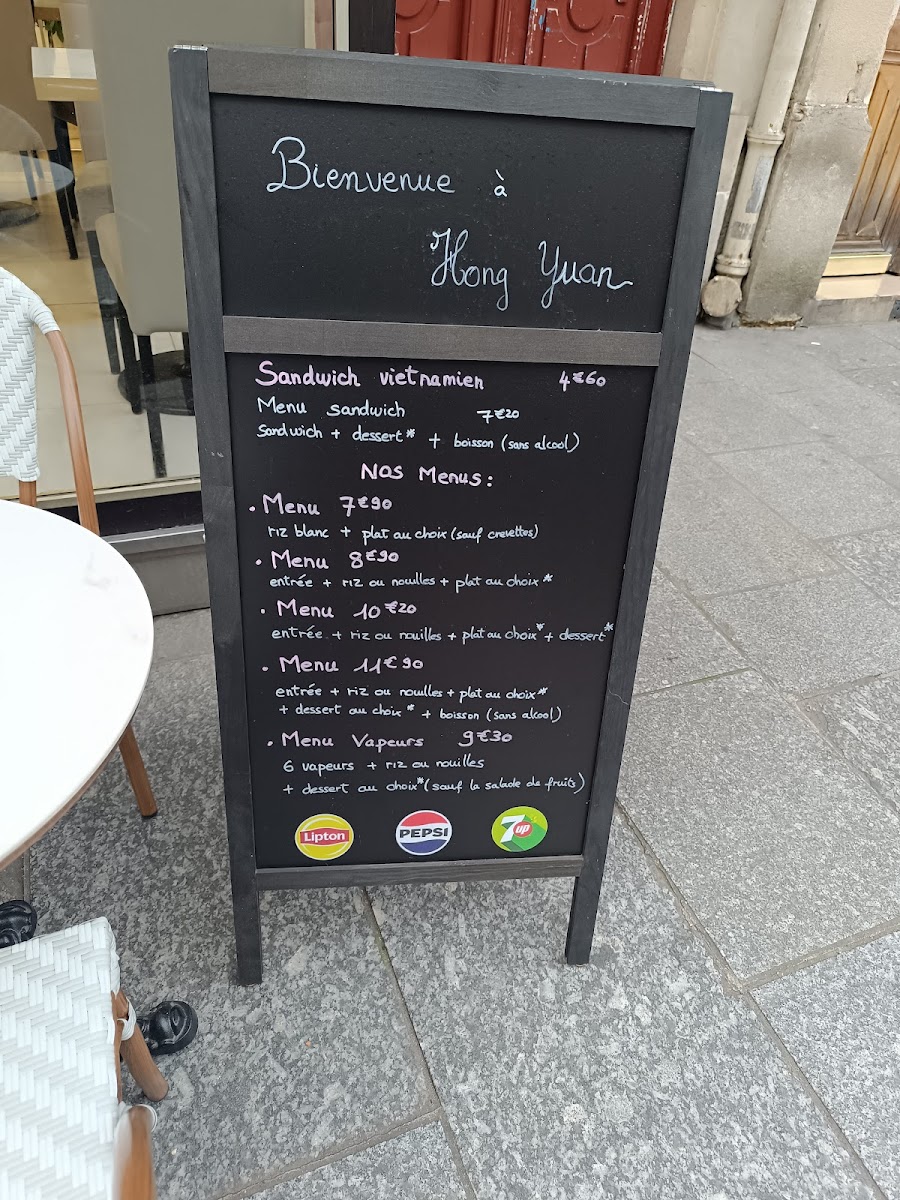 Bienvenue à
Hong Yuan
Sandwich vietnamien 4€60
Menu sandwich 7€20
Sandwich + dessert* + boisson (sans alcool)
Nos Menus:
• Menu 7€90
riz blanc + plat au choix (sauf crevettes)
• Menu 8€90
entrée + riz ou nouilles + plat au choix*
• Menu 10€20
entrée + riz ou nouilles + plat au choix* + dessert*
• Menu 11€90
entrée + riz ou nouilles + plat au choix*
+ dessert au choix* + boisson (sans alcool)
• Menu Vapeurs 9€30
6 vapeurs + riz ou nouilles
+ dessert au choix* (sauf la salade de fruits)
Lipton PEPSI 7up